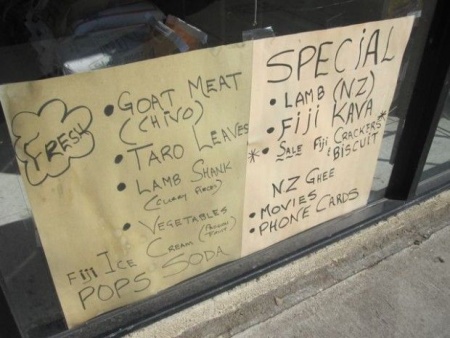 FRESH
• GOAT MEAT
(CHIVO)
• TARO LEAVES
• LAMB SHANK
(CURRY PIECES)
• VEGETABLES
FIJI ICE CREAM (PASSION FRUIT)
POPS SODA
SPECIAL
• LAMB (NZ)
• FIJI KAVA
* • SALE FIJI CRACKERS *
& BISCUIT
NZ GHEE
• MOVIES
• PHONE CARDS